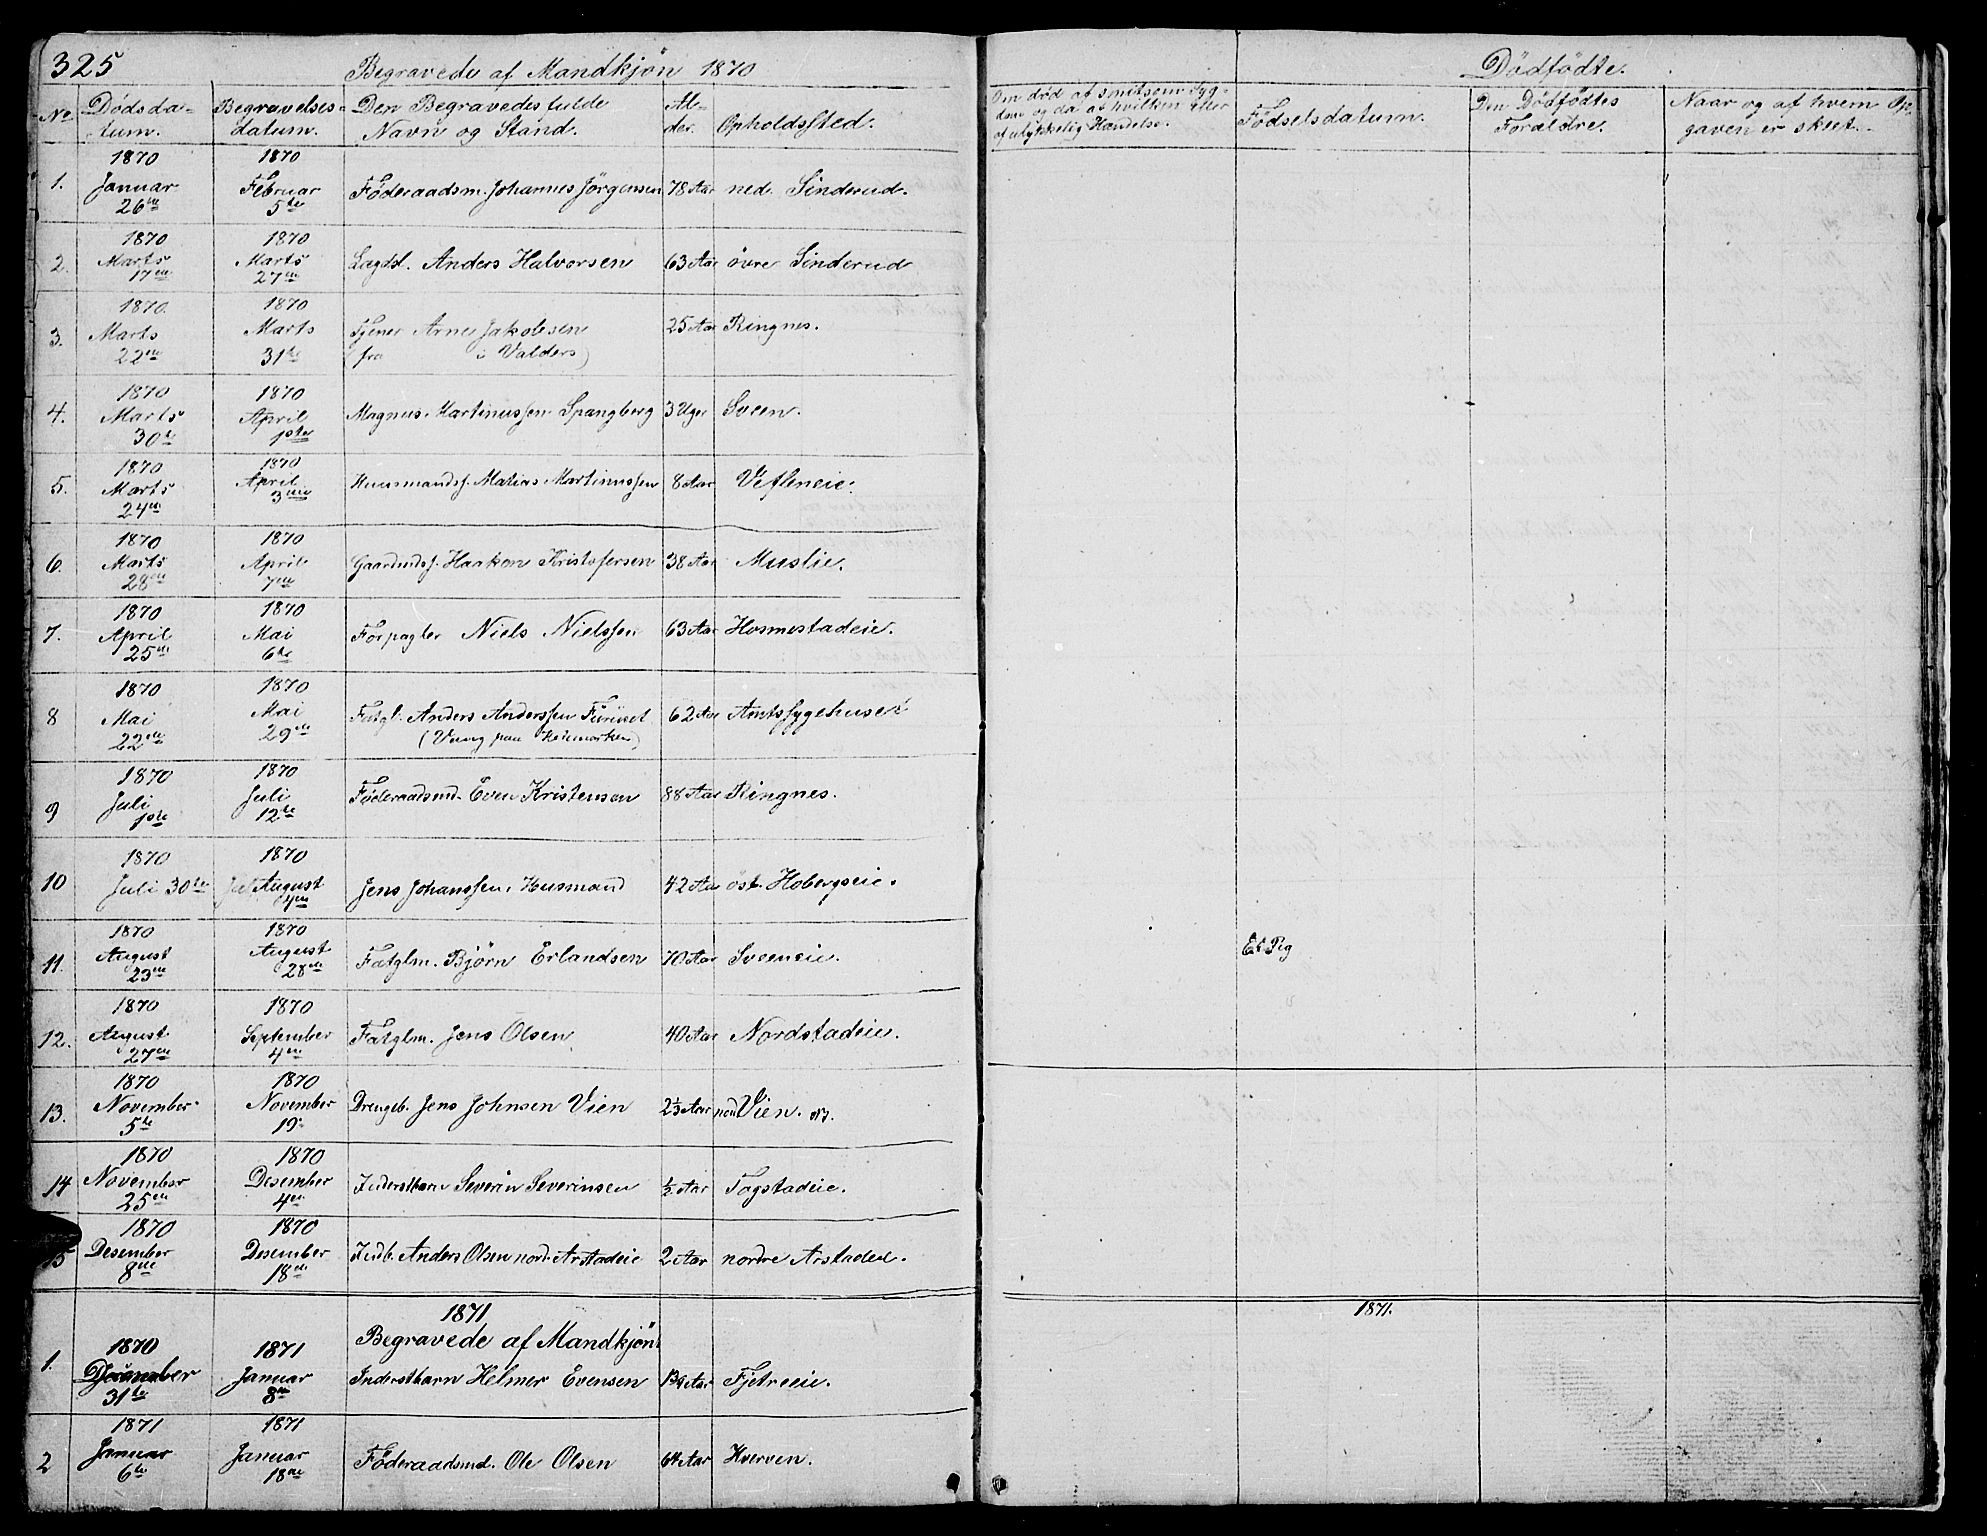 325
Begravede af Mandkjön 1870
Dödfödte.
No.
Dödsda-
tum.
Begravelses-
datum.
Den Begravedes fulde
Navn og Stand.
Al-
der.
Opholdssted.
Om död af smitsom Syg-
dom og da af hvilken eller
af ulykkelig Hændelse.
Födselsdatum.
Den Dödfödtes
Forældre.
Naar og af hvem Op-
gaven er skeet.
1. 1870 Januar 26de 1870 Februar 5te Föderaadsm. Johannes Jörgensen 78 Aar ned. Sinderud.
2. 1870 Marts 17de 1870 Marts 27de Lægdsl. Anders Halvorsen 63 Aar övre Sinderud
3. 1870 Marts 22de 1870 Marts 31te Tjener Arne Jakobsen 25 Aar Ringnes.
(fra i Valders)
4. 1870 Marts 30te 1870 April 1ste Magnus Martinussen Spangberg 3 Uger Sveen.
5. 1870 Marts 24de 1870 April 3die Huusmandss. Matias Martinussen 8 Aar
6. 1870 Marts 28de 1870 April 7de Gaardmds. Haakon Kristofersen 38 Aar Muslie.
7. 1870 April 25de 1870 Mai 6te Forpagter Niels Nielssen 63 Aar Hosmestadeie.
8 1870 Mai 22de 1870 Mai 29de Fatgl. Anders Anderssen Furuset 62 Aar Amtssygehuset
(Vang paa Hedemarken)
9 1870 Juli 1ste 1870 Juli 12te Föderaadsmd. Even Kristensen 88 Aar Ringnes.
10 1870 Juli 30te 1870 August Jens Johanssen, Husmand 42 Aar öst. Hobergseie.
11. 1870 August 23de 1870 August 28de Fatglm. Björn Erlandsen 70 Aar Sveeneie.
Et Pig
12. 1870 August 27de 1870 September 4de Fatglm. Jens Olsen 40 Aar Nordstadeie.
13. 1870 November 5te 1870 November 19. Drengeb. Jens Johnsen Vien 2½ Aar ned Vien.
14 1870 November 25de 1870 Desember 4de Inderstbarn Severin Severinsen ½ Aar Togstadeie.
15 1870 Desember 8de 1870 Desember 18de Indb. Anders Olsen nord. Arstadeie 2 Aar nordre Arstadei.
1871
Begravede af Mandkjön
1871.
1. 1870 Desember 31te 1871 Januar 8de Inderstbarn Helmer Evensen Aar Fjetreeie.
2 1871 Januar 6te 1871 Januar 18de Föderaadsmd. Ole Olsen 64 Aar Hverven.